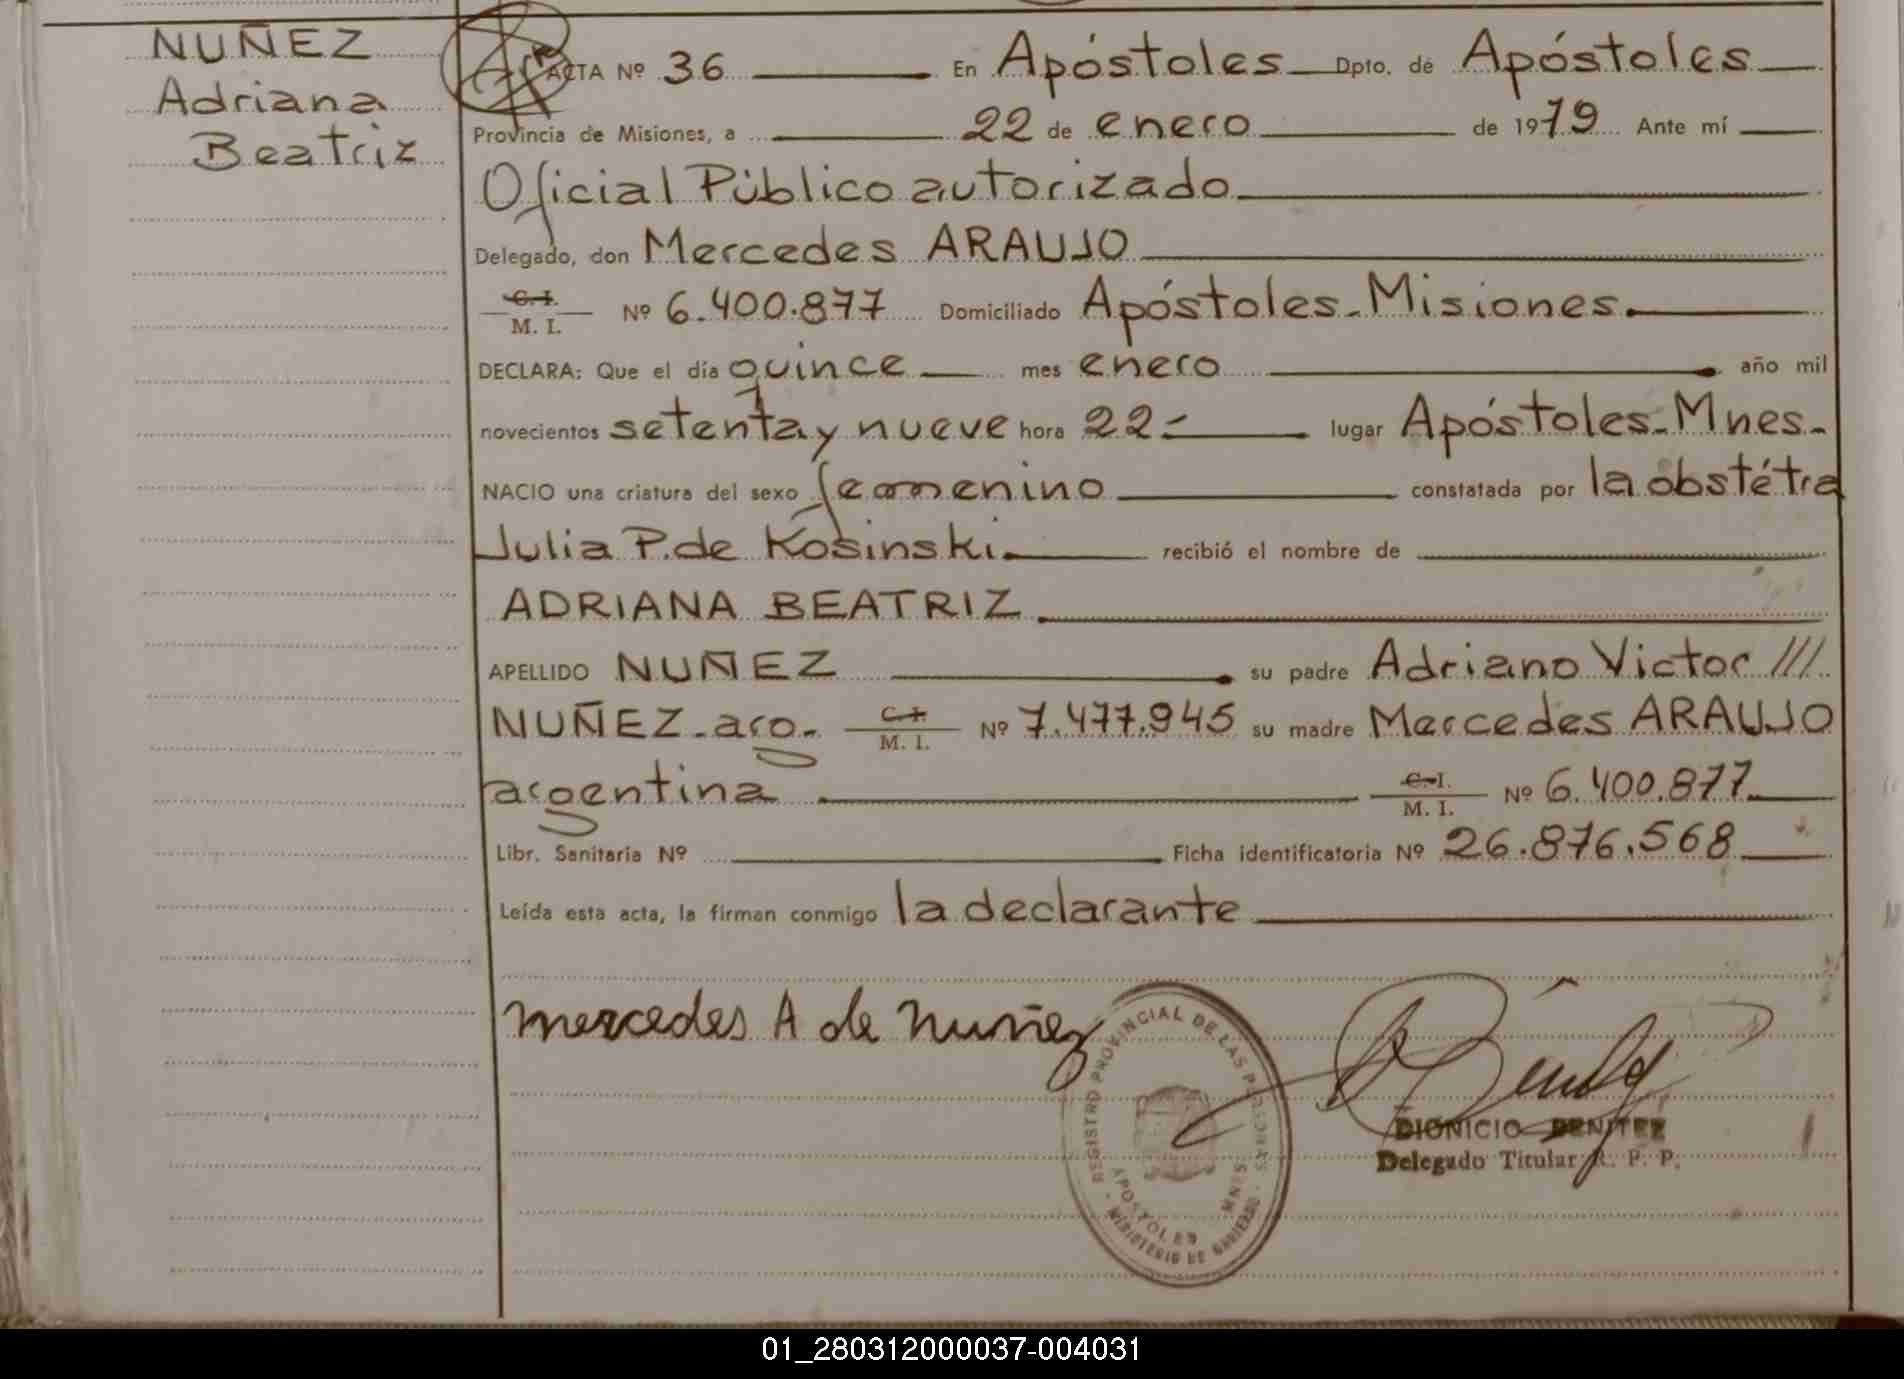 NUÑEZ
Adriana
Beatriz
ACTA Nº 36 En Apóstoles Dpto. de Apóstoles
Provincia de Misiones, a 22 de enero de 1979 Ante mí
Oficial Público autorizado
Delegado, don Mercedes ARAUJO
C.I. M. I. Nº 6.400.877 Domiciliado Apóstoles-Misiones.
DECLARA: Que el día quince mes enero año mil
novecientos setenta y nueve hora 22- lugar Apóstoles-Mnes-
NACIO una criatura del sexo femenino constatada por la obstétra
Julia P. de Kosinski recibió el nombre de
ADRIANA BEATRIZ
APELLIDO NUÑEZ su padre Adriano Victor ///
NUÑEZ-arg- C.I. M. I. Nº 7.477.945 su madre Mercedes ARAUJO
argentina C.I. M. I. Nº 6.400.877
Libr. Sanitaria Nº Ficha identificatoria Nº 26.876.568
Leída esta acta, la firman conmigo la declarante
mercedes A de nuñez
REGISTRO PROVINCIAL DE LAS PERSONAS
APOSTOLES MNES
MINISTERIO DE GOBIERNO
DIONICIO BENITEZ
Delegado Titular R. P. P.
01_280312000037-004031